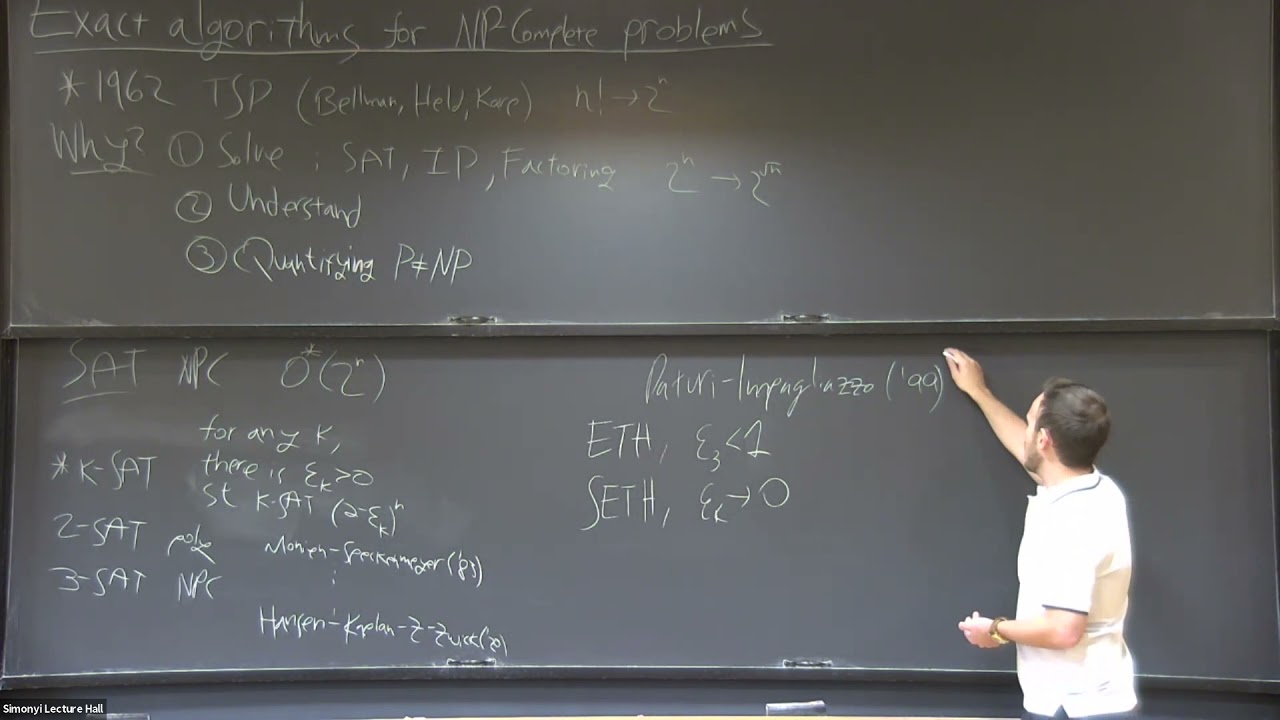 Exact algorithms for NP-Complete problems
* 1962 TSP (Bellman, Held, Karp) n! → 2^n
Why? ① Solve : SAT, IP, Factoring 2^n → 2^√n
② Understand
③ Quantifying P≠NP
SAT NPC O*(2^n)
for any k,
* K-SAT there is ε_k>0
st K-SAT (2-ε_k)^n
2-SAT poly Monien-Speckenmeyer ('83)
⋮
3-SAT NPC
Hansen-Kaplan-Z-Zwick
Paturi-Impagliazzo ('99)
ETH, ε_3<1
SETH, ε_k→0
Simonyi Lecture Hall